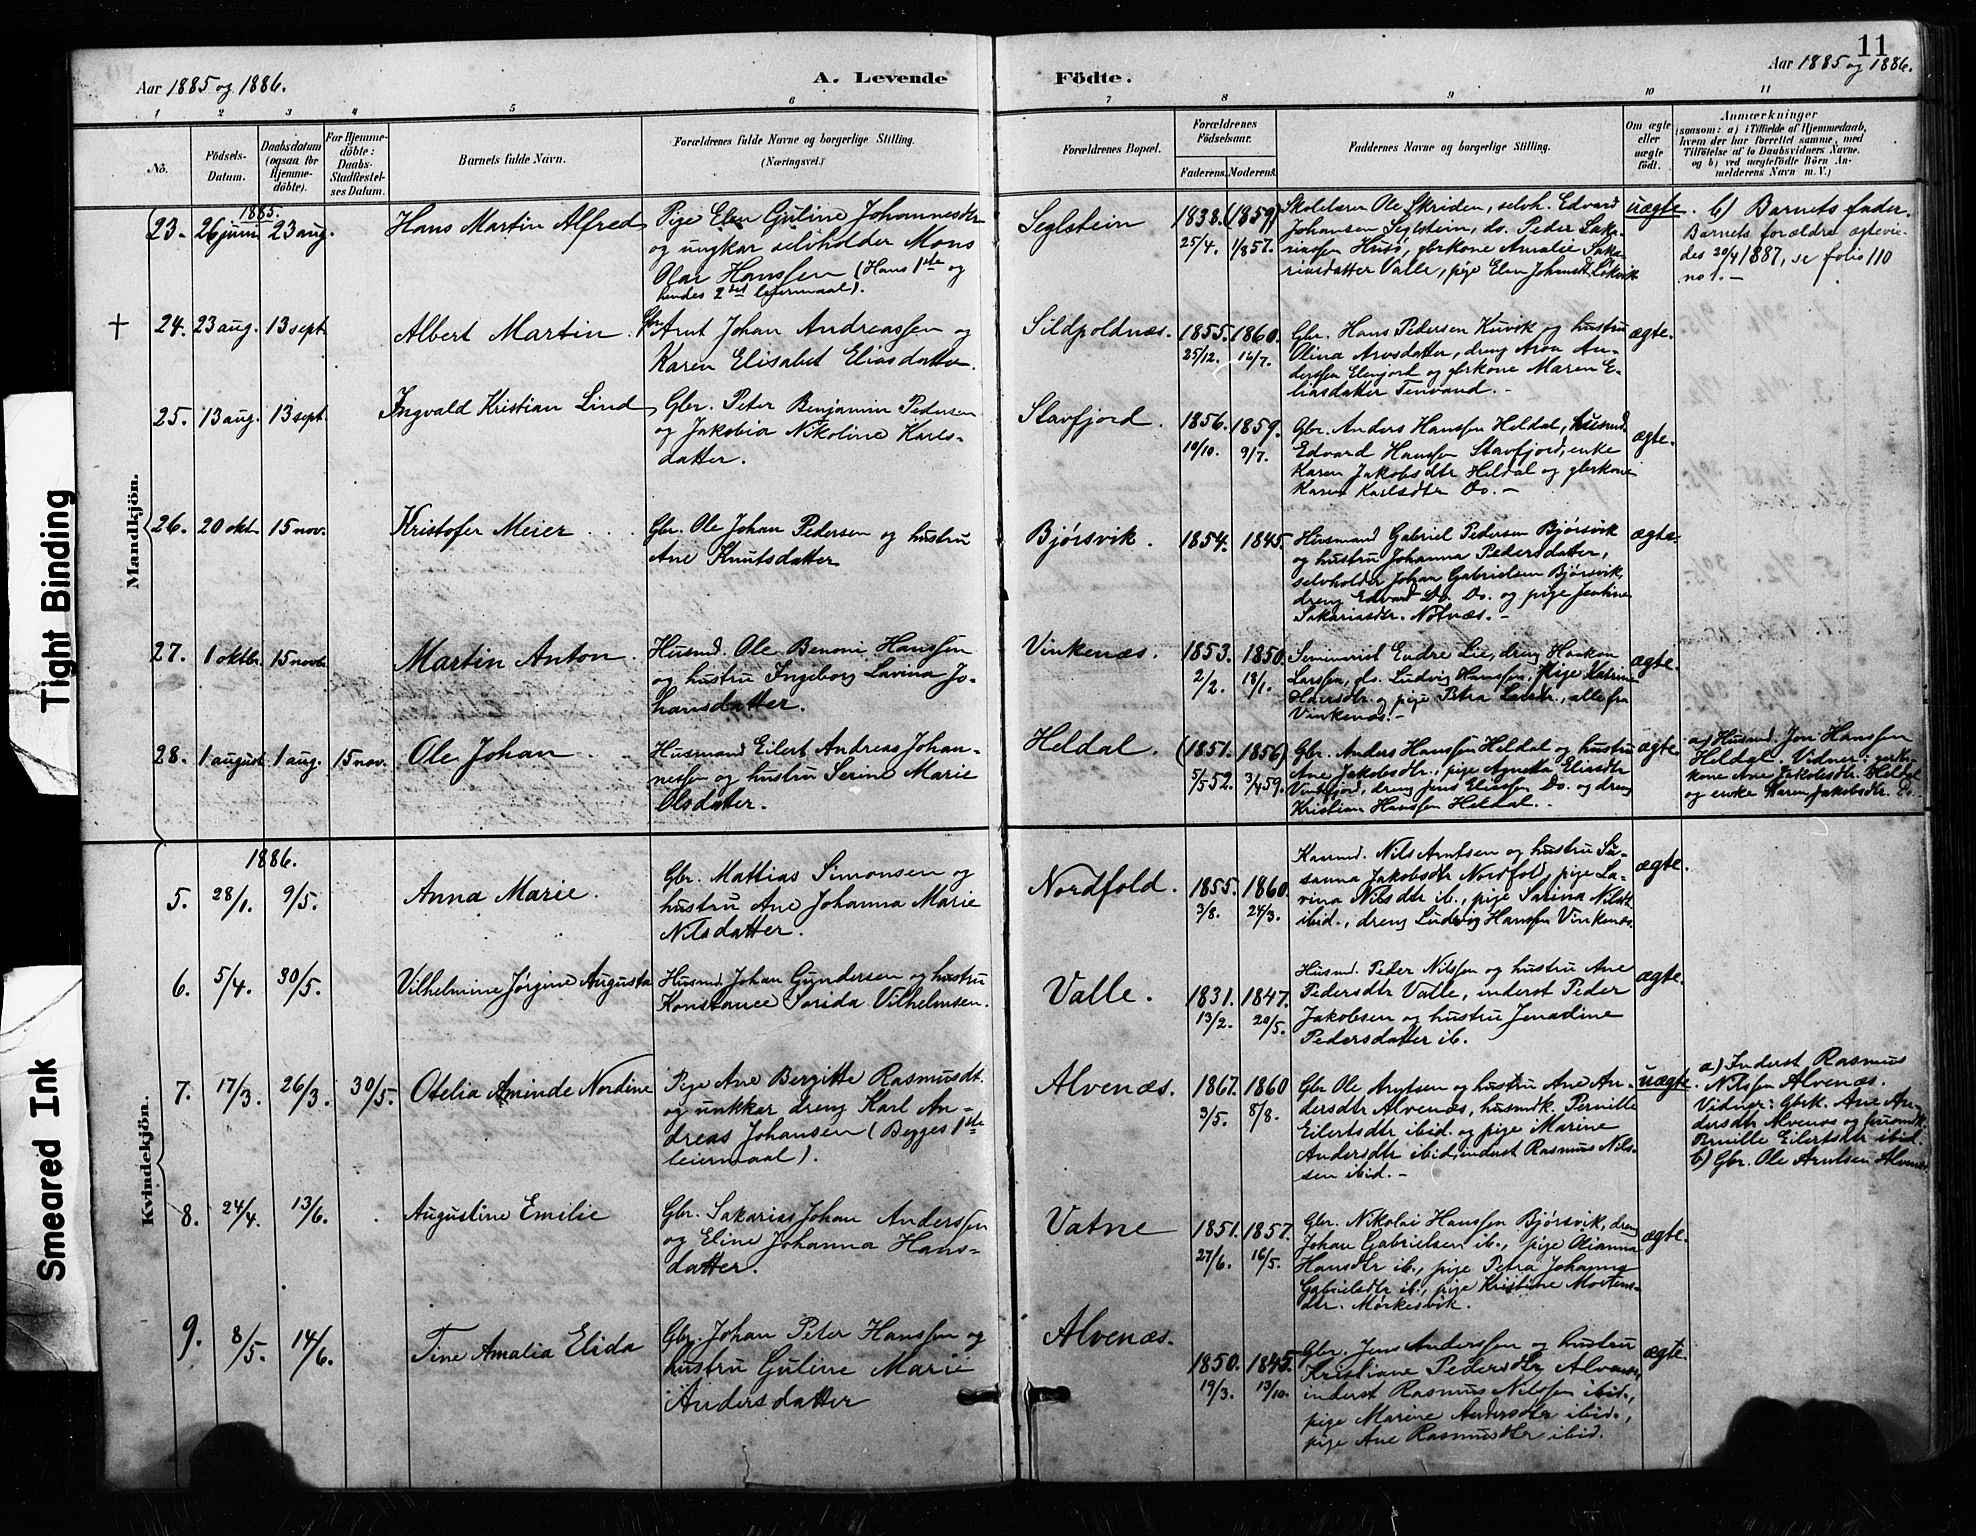 11
Aar 1885 og 1886.
A. Levende
Födte.
Aar 1885 og 1886.
1 2 3 4 5 6 7 8 9 10 11
No.
Födsels-Datum.
Daabsdatum (ogsaa for Hjemmedöbte).
For Hjemmedöbte: Daabs-Stadfæstelses Datum.
Barnets fulde Navn.
Forældrenes fulde Navne og borgerlige Stilling.
(Næringsvei.)
Forældrenes Bopæl.
Forældrenes Födselsaar.
Faderens. Moderens.
Faddernes Navne og borgerlige Stilling.
Om ægte eller uægte födt.
Anmærkninger
(saasom: a) i Tilfælde af Hjemmedaab, hvem der har forrettet samme, med Tilföielse af to Daabsvidners Navne, og b) ved uægtefödte Börn Anmelderens Navn m. V.)
Mandkjön.
1885.
23. 26 juni 23 aug. Hans Martin Alfred
Pige Elen Guline Johannesdtr
og ungkar selvholder Mons
Olai Hanssen (Hans 1ste og
hendes 2det leiermaal).
Seglstein 1838. (1859)
25/4. 1/857.
Skolelærer Ole Skriden, selvh. Edvard
Johansen Seglstein, do. Peder Saka-
riassen Husö, gbrkone Amalie Saka-
riasdatter Valle, pige Elen Johansdtr Løkvik
uægte. b) Barnets fader.
Barnets forældre ægtevie-
des 20/4 1887, se folio 110
no 1. —
+ 24. 23 aug. 13 sept. Albert Martin.
Gbr. Arnt Johan Andreassen og
Karen Elisabet Eliasdatter.
Sildpoldnæs. 1855. 1860.
25/12. 16/7.
Gbr. Hans Pedersen Kuvik og hustru
Olina Arnsdatter, dreng Aron An-
derssen Elvefjord og gbrkone Maren E-
liasdatter Tenvand. —
ægte.
25. 13 aug. 13 sept. Ingvald Kristian Lind
Gbr. Peter Benjamin Pedersen
og Jakobia Nikoline Karls-
datter.
Stavfjord. 1856. 1859.
10/10. 9/7.
Gbr. Anders Hanssen Heldal, husmd.
Edvard Hanssen Stavfjord, enke
Karen Jakobsdtr Heldal og gbrkone
Karen Karlsdtr Do. —
ægte.
26. 20 okt. 15 nov. Kristofer Meier
Gbr. Ole Johan Pedersen og hustru
Ane Knutsdatter
Bjørsvik. 1854. 1845.
Husmand Gabriel Pedersen Bjørsvik
og hustru Johanna Pedersdatter,
selvholder Johan Gabrielsen Bjørsvik,
dreng Edvard Do. Do. og pige Jentine
Sakariasdtr. Notnæs. —
ægte.
27. 1 oktbr. 15 novb. Martin Anton
Husmd. Ole Benoni Hanssen
og hustru Ingeborg Lavina Jo-
hansdatter.
Vinkenæs. 1853. 1850.
2/2. 18/1.
Seminarist Endre Lie, dreng Haakon
Larssen, do. Ludvig Hanssen. Pige Katrine
Hansdtr. og pige Petra Larsdtr., alle fra
Vinkenæs. —
ægte.
28. 1 august 1 aug. 15 nov. Ole Johan
Husmand Eilert Andreas Johan-
nessen og hustru Serine Marie
Olsdatter.
Heldal. (1851. 1856)
5/552. 3/459.
Gbr. Anders Hanssen Heldal og hustru
Ane Jakobsdtr., pige Agnetha Eliasdtr
Vindfjord, dreng Jens Eliassen Do. og dreng
Kristian Hanssen Heldal. —
ægte
a) Husmd. Jon Hanssen
Heldal. Vidner: gbr-
kone Ane Jakobsdtr. Heldal
og enke Karen Jakobsdtr. Do.
Kvindekjön.
1886.
5. 28/1. 9/5. Anna Marie.
Gbr. Mattias Simonsen og
hustru Ane Johanna Marie
Nilsdatter.
Nordfold. 1855. 1860.
3/8. 24/3.
Kaarmd. Nils Arntsen og hustru Su-
sanna Jakobsdtr Nordfold, pige La-
vina Nilsdtr ib., pige Sarina Nilsdtr
ibid., dreng Ludvig Hanssen Vinkenæs.
ægte.
6. 5/4. 30/5. Vilhelmine Jørgine Augusta
Husmd. Johan Gundersen og hustru
Konstance Torida Vilhelmsen.
Valle. 1831. 1847.
13/2. 20/5.
Husmd. Peder Nilssen og hustru Ane
Pedersdtr Valle, inderst Peder
Jakobsen og hustru Jenadine
Pedersdatter ib.
ægte.
7. 17/3. 26/3. 30/5. Otelia Aminde Nordine
Pige Ane Bergitte Rasmusdt.
og unkkar dreng Karl An-
dreas Johansen (Begges 1ste
leiermaal).
Alvenæs. 1867. 1860
3/5. 8/8.
Gbr Ole Arntsen og hustru Ane An-
dersdtr Alvenæs, husmdk. Pernille
Eilertsdtr ibid. og pige Marine
Andersdtr ibid., inderst Rasmus Nils-
sen ibid. —
uægte.
a) Inderst Rasmus
Nilssen Alvenæs.
Vidner: Gbrk. Ane An-
dersdtr Alvenæs og husmdk.
Pernille Eilertsdtr ibid.
b) Gbr. Ole Arntsen Alvenæs
8. 24/4. 13/6. Augustine Emilie
Gbr. Sakarias Johan Anderssen
og Eline Johanna Hans-
datter.
Vatne 1851. 1857.
27/6. 16/5.
Gbr. Nikolai Hanssen Bjørsvik, dreng
Johan Gabrielsen ib., pige Olianna
Hansdtr ib., pige Petra Johanna
Gabrielsdtr ib., pige Kristine Mortens-
dtr. Mørkesvik.
ægte.
9. 8/5. 14/6. Tine Amalia Elida
Gbr. Johan Peter Hanssen og
hustru Guline Marie
Andersdatter
Alvenæs. 1850. 1845.
19/3. 13/10.
Gbr. Jens Anderssen og hustru
Kristiane Pedersdtr Alvenæs,
inderst Rasmus Nilssen ibid.,
pige Marine Andersdtr ibid.,
pige Ane Rasmusdtr ibid.
ægte.
Tight Binding
Smeared Ink